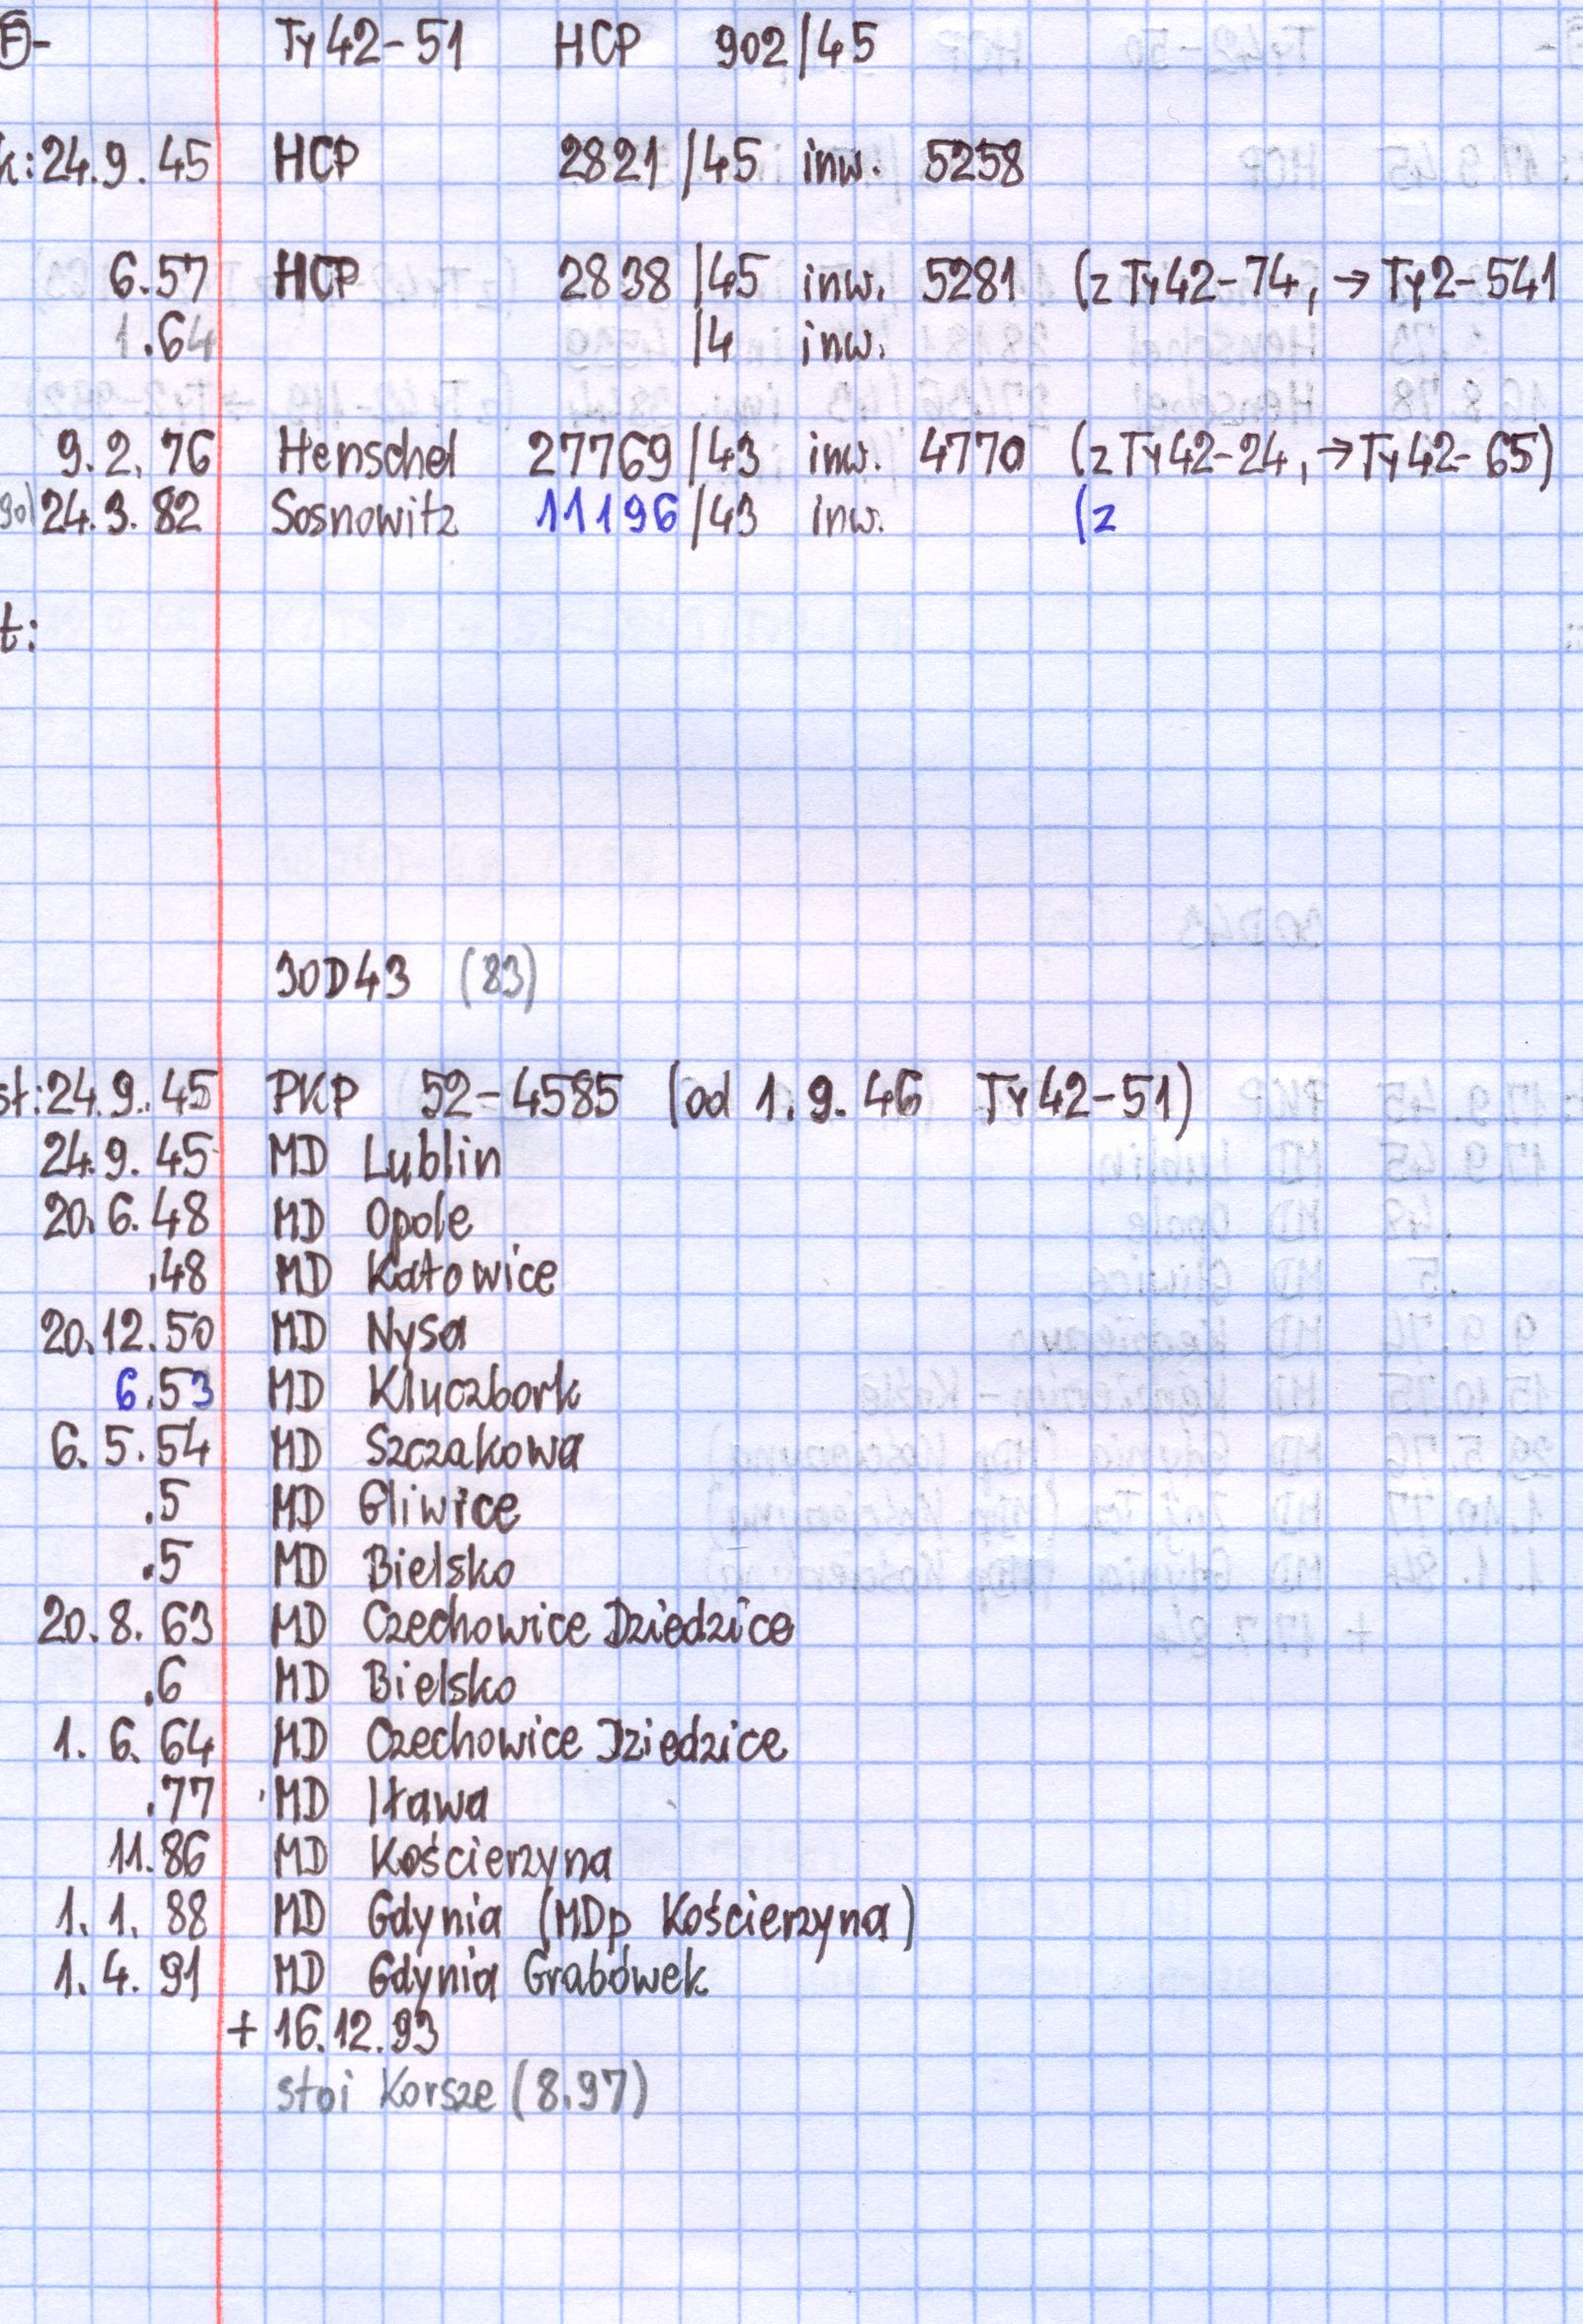 F- Ty42-51 HCP 902/45
k: 24.9.45 HCP 2821/45 inw. 5258
6.57 HCP 2838/45 inw. 5281 (z Ty42-74, → Ty2-541
1.64 /4 inw.
9.2.76 Henschel 27769/43 inw. 4770 (z Ty42-24, → Ty42-65)
90) 24.3.82 Sosnowitz 11196/43 inw. (z
t:
30D43 (83)
st: 24.9.45 PKP 52-4585 (od 1.9.46 Ty42-51)
24.9.45 MD Lublin
20.6.48 MD Opole
.48 MD Katowice
20.12.50 MD Nysa
6.53 MD Kluczbork
6.5.54 MD Szczakowa
.5 MD Gliwice
.5 MD Bielsko
20.8.63 MD Czechowice Dziedzice
.6 MD Bielsko
1.6.64 MD Czechowice Dziedzice
.77 MD Iława
11.86 MD Kościerzyna
1.1.88 MD Gdynia (MDp Kościerzyna)
1.4.91 MD Gdynia Grabówek
+ 16.12.93
stoi Korsze (8.97)